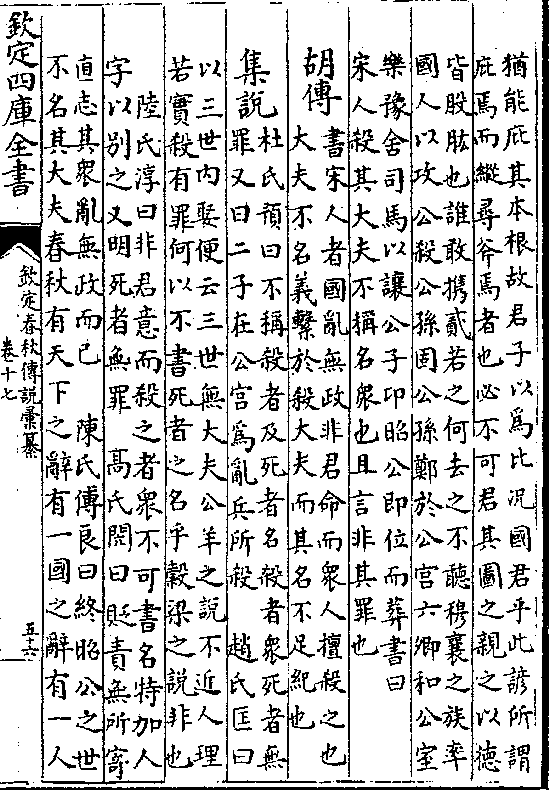 猶能庇其本根故君子以爲比況國君乎此諺所謂
庇焉而縱尋斧焉者也必不可君其圖之親之以德
皆股肱也誰敢攜貳若之何去之不聽穆襄之族率
國人以攻公殺公孫固公孫鄭於公宫六卿和公室
樂豫舍司馬以讓公子卬昭公即位而葬書曰
宋人殺其大夫不稱名衆也且言非其罪也
胡傳
書宋人者國亂無政非君命而衆人擅殺之也
大夫不名義繫於殺大夫而其名不足紀也
集説
杜氏預曰不稱殺者及死者名殺者衆死者無
罪又曰二子在公宫爲亂兵所殺 趙氏匡曰
以三世内娶便云三世無大夫公羊之説不近人理
若實殺有罪何以不書死者之名乎穀梁之説非也
陸氏淳曰非君意而殺之者衆不可書名特加人
字以别之又明死者無罪 髙氏閌曰貶責無所寄
直志其衆亂無政而已 陳氏傅良曰終昭公之世
不名其大夫春秋有天下之辭有一國之辭有一人
欽定四庫全書
欽定春秋傳説彙纂
卷十七
五十六